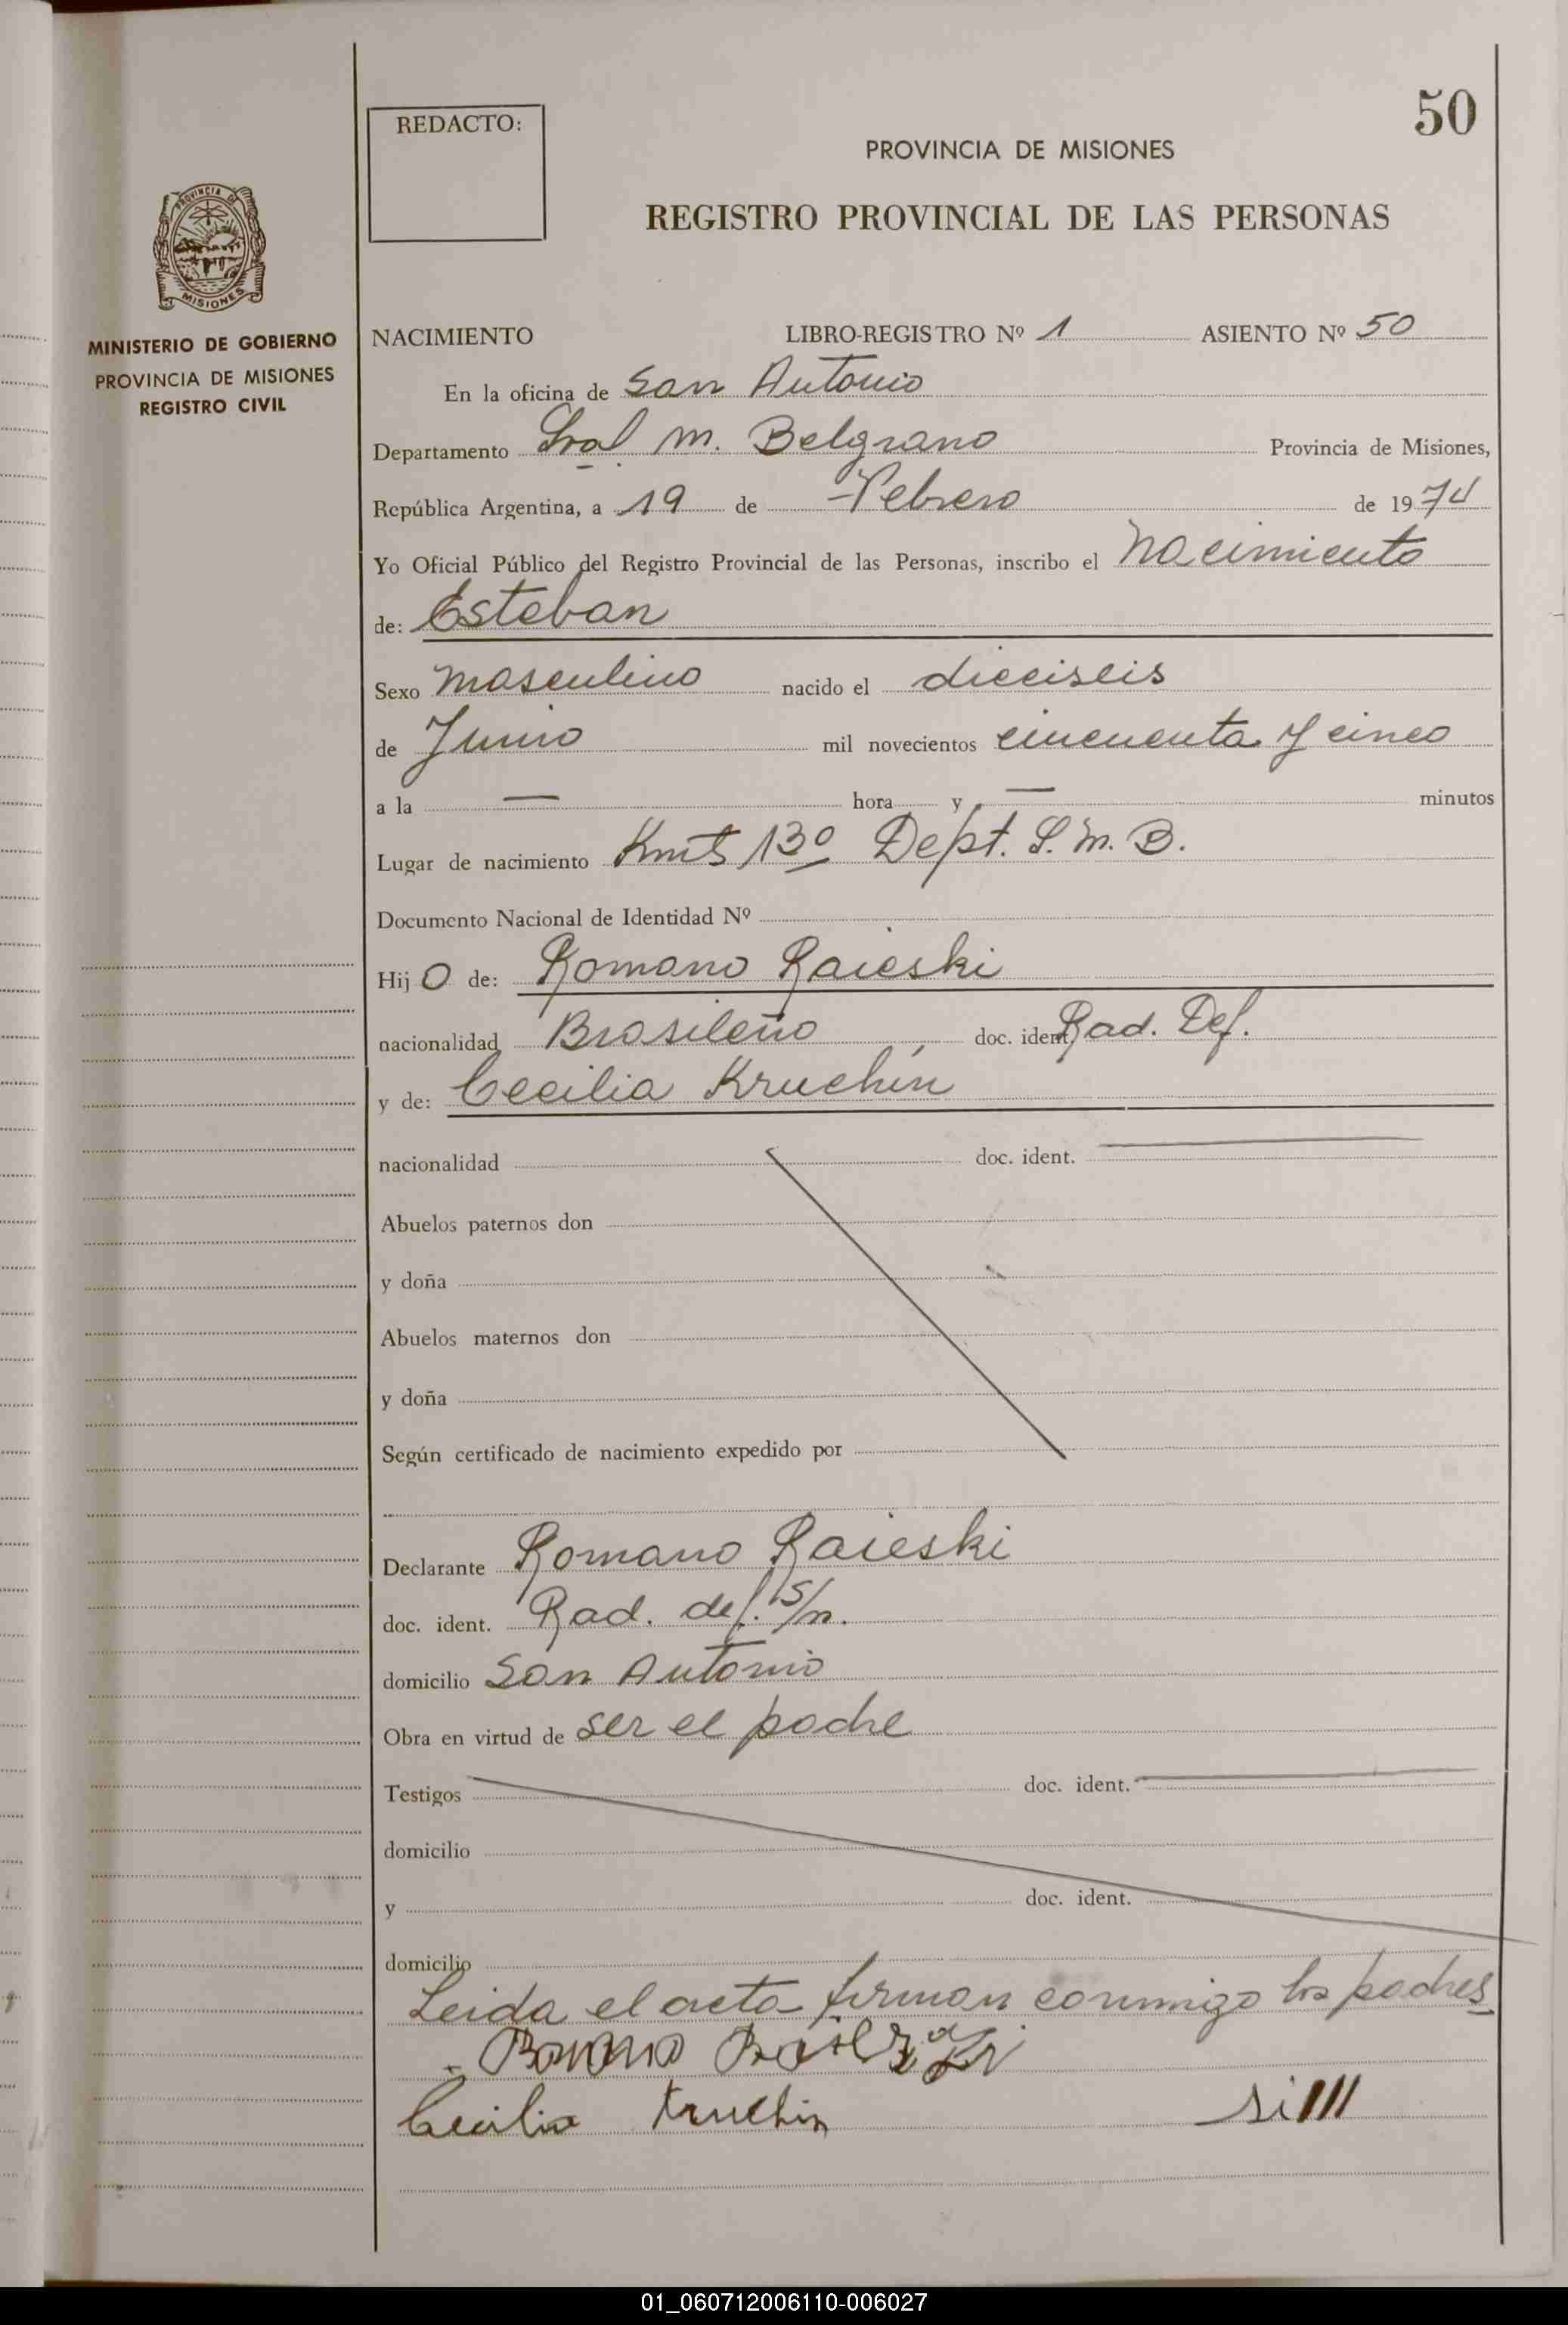 50
REDACTO:
PROVINCIA DE MISIONES
REGISTRO PROVINCIAL DE LAS PERSONAS
PROVINCIA DE
MISIONES
MINISTERIO DE GOBIERNO
PROVINCIA DE MISIONES
REGISTRO CIVIL
NACIMIENTO LIBRO-REGISTRO Nº 1 ASIENTO Nº 50
En la oficina de San Antonio
Departamento Gral M. Belgrano Provincia de Misiones,
República Argentina, a 19 de Febrero de 1974
Yo Oficial Público del Registro Provincial de las Personas, inscribo el nacimiento
de: Esteban
Sexo masculino nacido el dieciseis
de Junio mil novecientos cincuenta y cinco
a la — hora y — minutos
Lugar de nacimiento Kmts 130 Dept. G. M. B.
Documento Nacional de Identidad Nº
Hijo de: Romano Raieski
nacionalidad Brasileño doc. ident. Rad. Def.
y de: Cecilia Kruchin
nacionalidad doc. ident.
Abuelos paternos don
y doña
Abuelos maternos don
y doña
Según certificado de nacimiento expedido por
Declarante Romano Raieski
doc. ident. Rad. def. s/n.
domicilio San Antonio
Obra en virtud de ser el padre
Testigos doc. ident.
domicilio
y doc. ident.
domicilio
Leida el acta firman conmigo los padres
Cecilia Kruchin
01_060712006110-006027